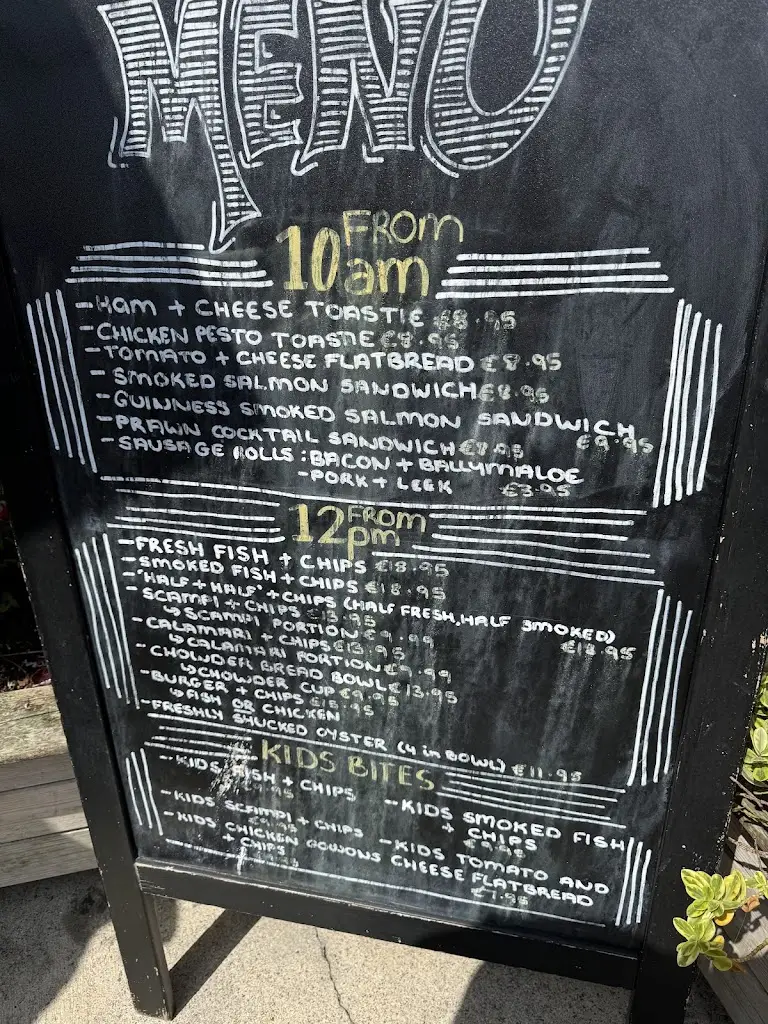 MENU
FROM
10am
-HAM + CHEESE TOASTIE €8.95
-CHICKEN PESTO TOASTIE €8.95
-TOMATO + CHEESE FLATBREAD €8.95
-SMOKED SALMON SANDWICH €8.95
-GUINNESS SMOKED SALMON SANDWICH
€9.95
-PRAWN COCKTAIL SANDWICH €8.95
-SAUSAGE ROLLS: BACON + BALLYMALOE
-PORK + LEEK €3.95
FROM
12pm
-FRESH FISH + CHIPS €18.95
-SMOKED FISH + CHIPS €18.95
-"HALF + HALF" + CHIPS (HALF FRESH, HALF SMOKED)
€18.95
-SCAMPI + CHIPS €13.95
↳ SCAMPI PORTION €9.99
-CALAMARI + CHIPS €13.95
↳ CALAMARI PORTION €9.99
-CHOWDER BREAD BOWL €13.95
↳ CHOWDER CUP €9.95
-BURGER + CHIPS
↳ FISH OR CHICKEN
-FRESHLY SHUCKED OYSTER (4 in BOWL) €11.95
KIDS BITES
-KIDS FISH + CHIPS
-KIDS SMOKED FISH
+ CHIPS
€9.95
-KIDS SCAMPI + CHIPS
-KIDS CHICKEN GOUJONS
+ CHIPS
-KIDS TOMATO AND
CHEESE FLATBREAD
€7.95